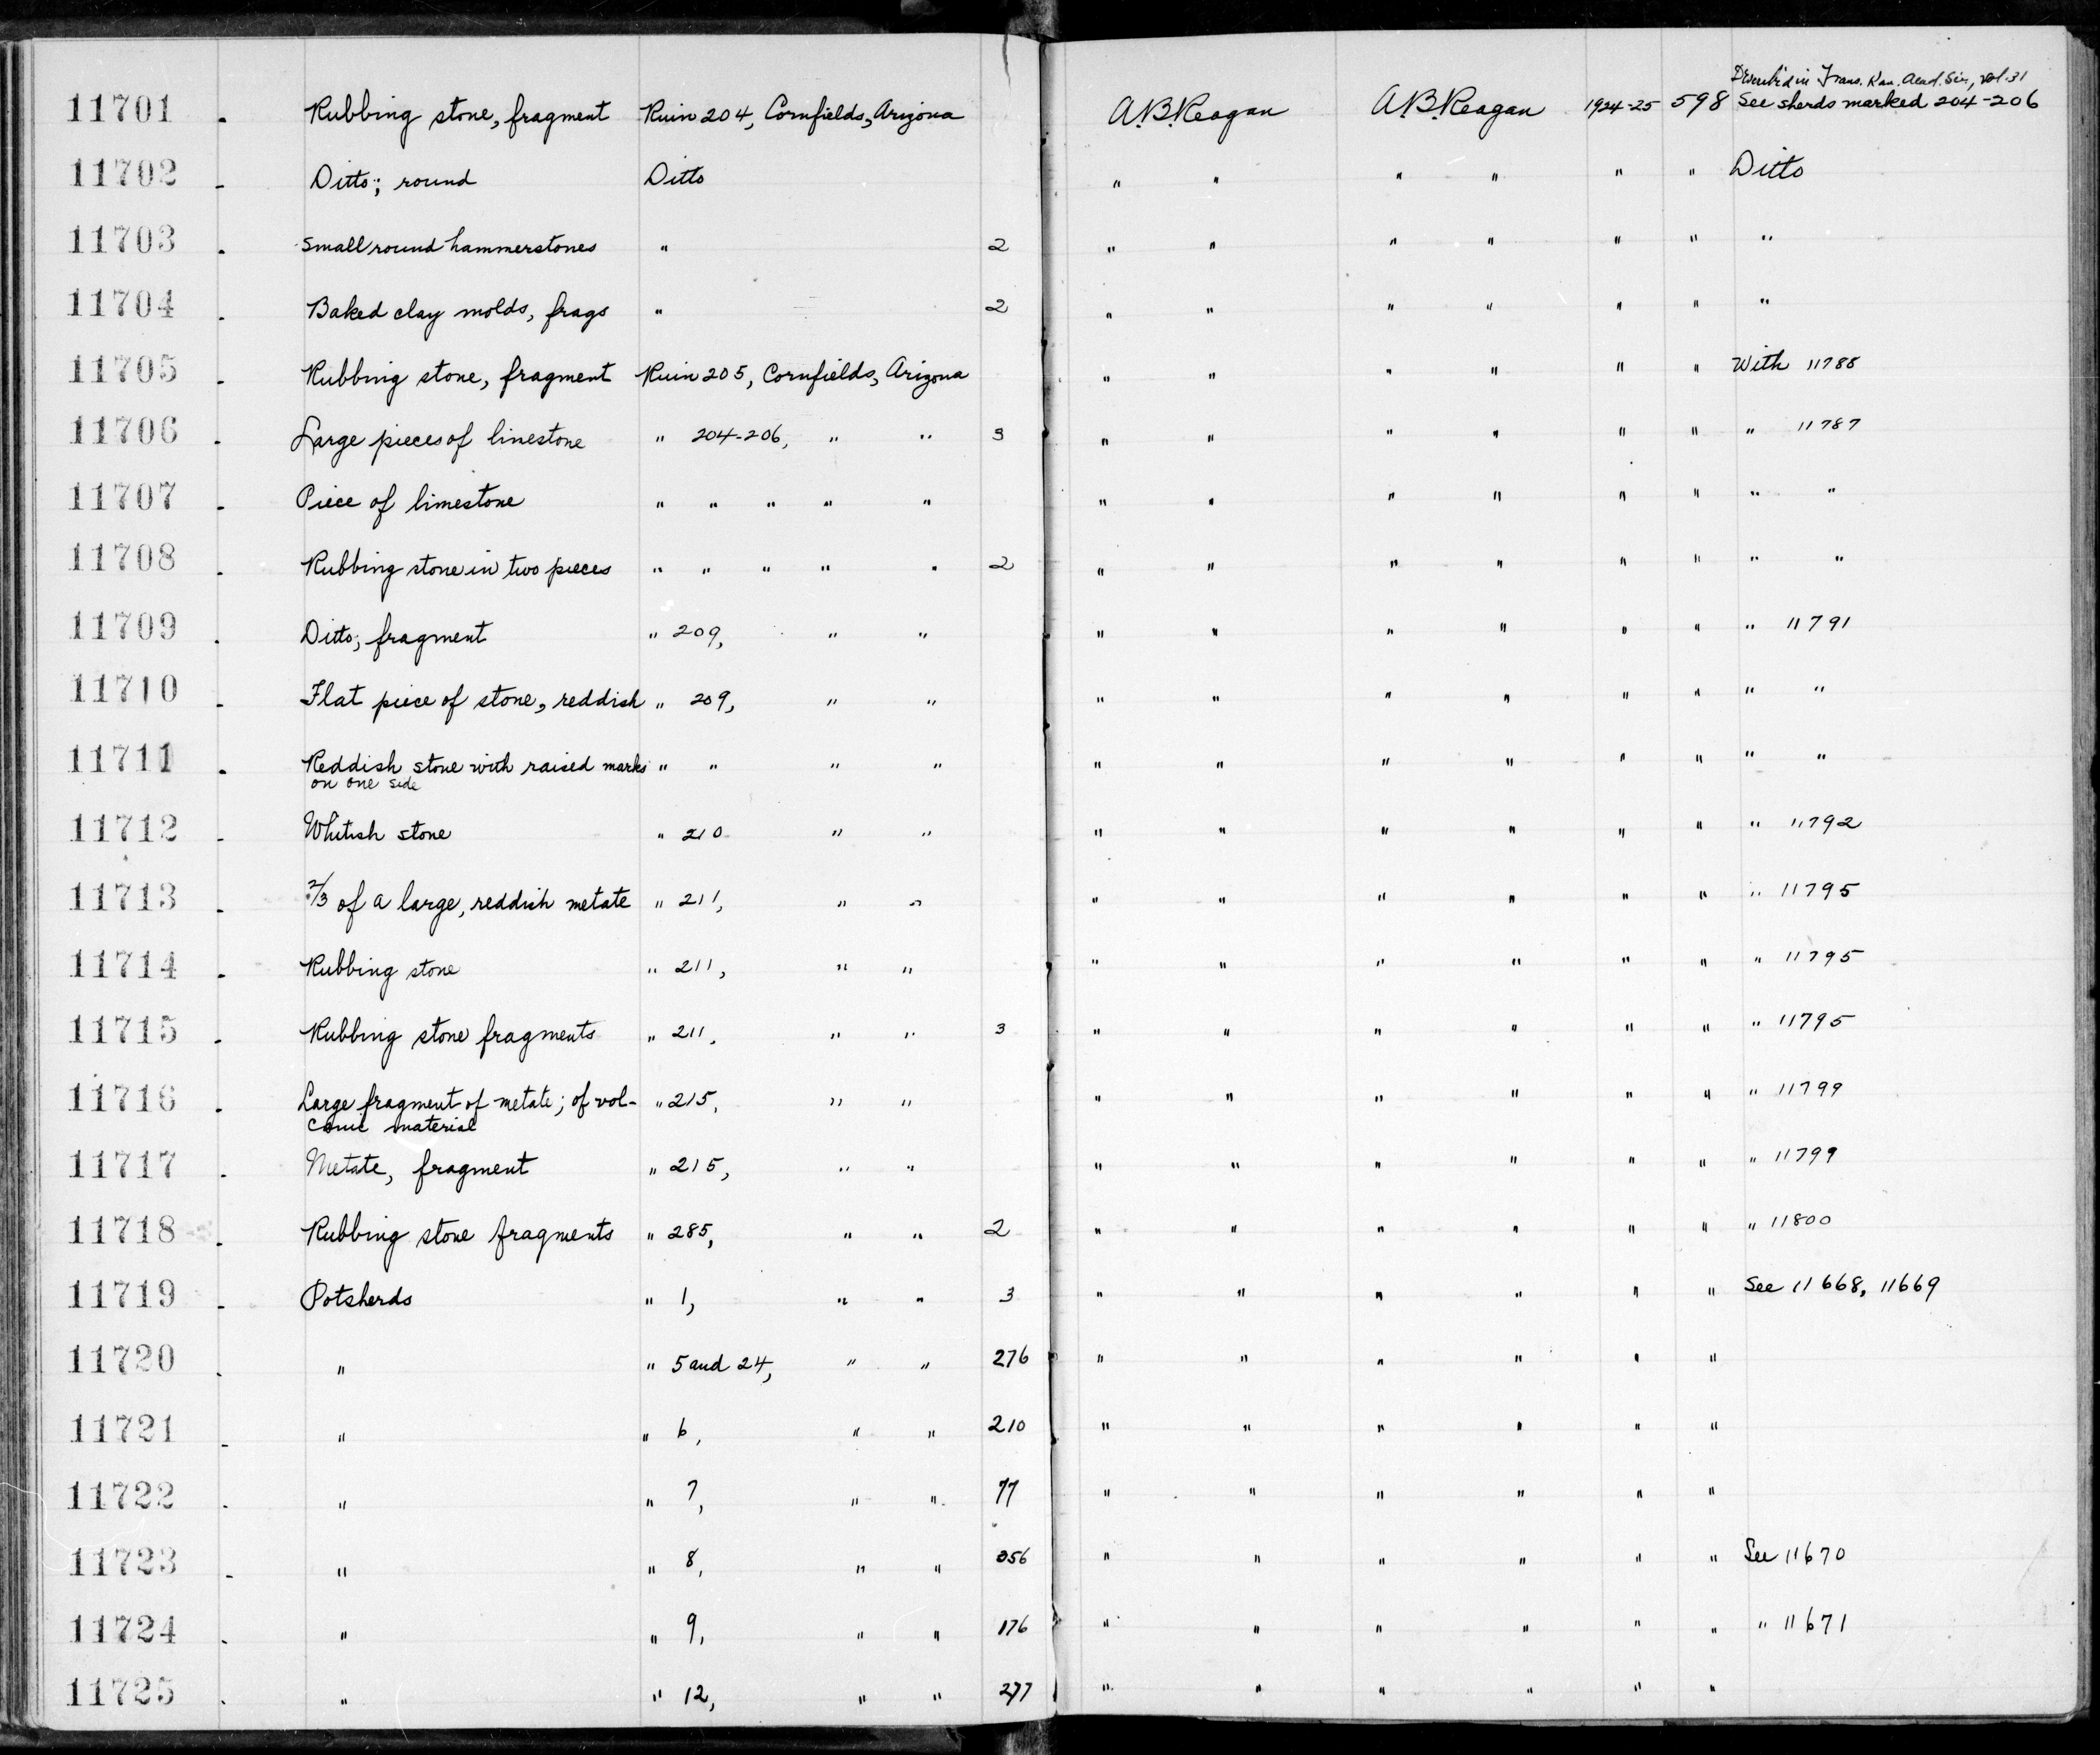 Described in Trans. Kan. Acad. Sci., vol. 31
11701 . Rubbing stone, fragment Ruin 204, Cornfields, Arizona A.B. Reagan A.B. Reagan 1924-25 598 See sherds marked 204-206
11702 . Ditto; round Ditto " " " " " " Ditto
11703 . Small round hammerstones " 2 " " " " " " "
11704 . Baked clay molds, frags " 2 " " " " " " "
11705 . Rubbing stone, fragment Ruin 205, Cornfields, Arizona " " " " " " With 11788
11706 . Large pieces of linestone " 204-206, " " 3 " " " " " " " 11787
11707 . Piece of limestone " " " " " " " " " " " " "
11708 . Rubbing stone in two pieces " " " " " 2 " " " " " " " "
11709 . Ditto; fragment " 209, " " " " " " " " " 11791
11710 . Flat piece of stone, reddish " 209, " " " " " " " " " "
11711 . Reddish stone with raised marks " " " " " " " " " " " "
on one side
11712 . Whitish stone " 210 " " " " " " " " " 11792
11713 . 2/3 of a large, reddish metate " 211, " " " " " " " " " 11795
11714 . Rubbing stone " 211, " " " " " " " " " 11795
11715 . Rubbing stone fragments " 211, " " 3 " " " " " " " 11795
11716 . Large fragment of metate; of vol- " 215, " " " " " " " " " 11799
canic material
11717 . Metate, fragment " 215, " " " " " " " " " 11799
11718 . Rubbing stone fragments " 285, " " 2 " " " " " " " 11800
11719 . Potsherds " 1, " " 3 " " " " " " See 11668, 11669
11720 . " " 5 and 24, " " 276 " " " " " "
11721 . " " 6, " " 210 " " " " " "
11722 . " " 7, " " 77 " " " " " "
11723 . " " 8, " " 356 " " " " " " See 11670
11724 . " " 9, " " 176 " " " " " " " 11671
11725 . " " 12, " " 277 " " " " " "